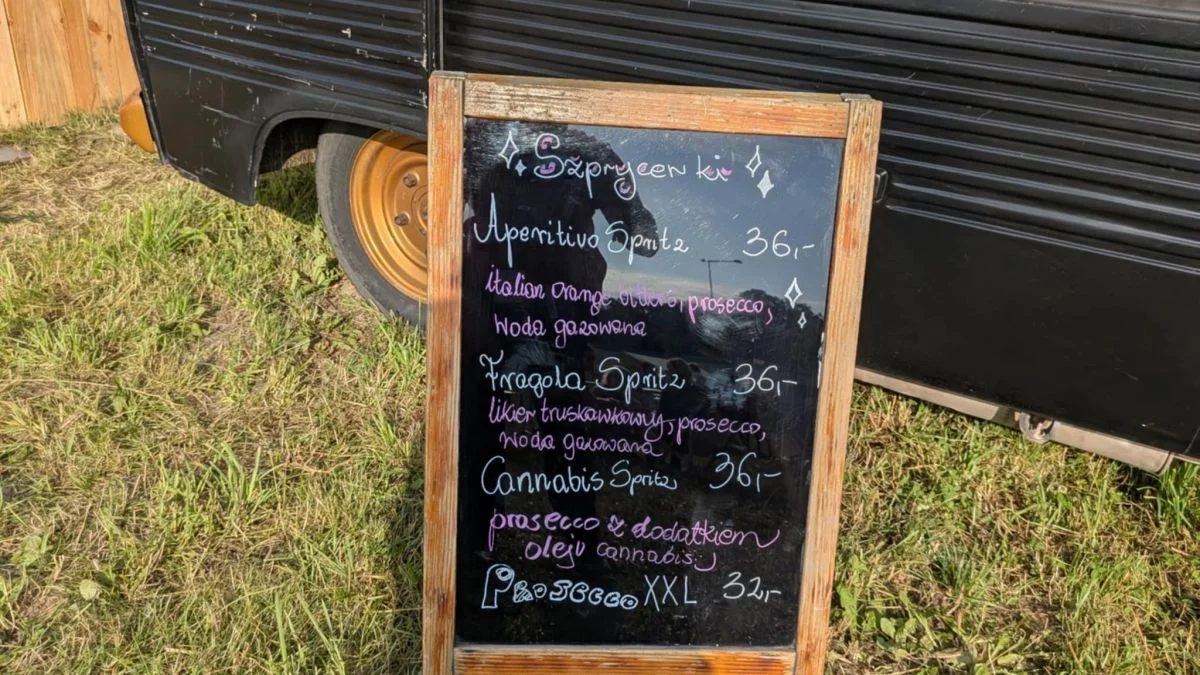 Szprycerki
Aperitivo Spritz 36,-
italian orange bitters, prosecco,
woda gazowana
Fragola Spritz 36,-
likier truskawkowy, prosecco,
woda gazowana
Cannabis Spritz 36,-
prosecco z dodatkiem
oleju cannabis;
Prosecco XXL 32,-